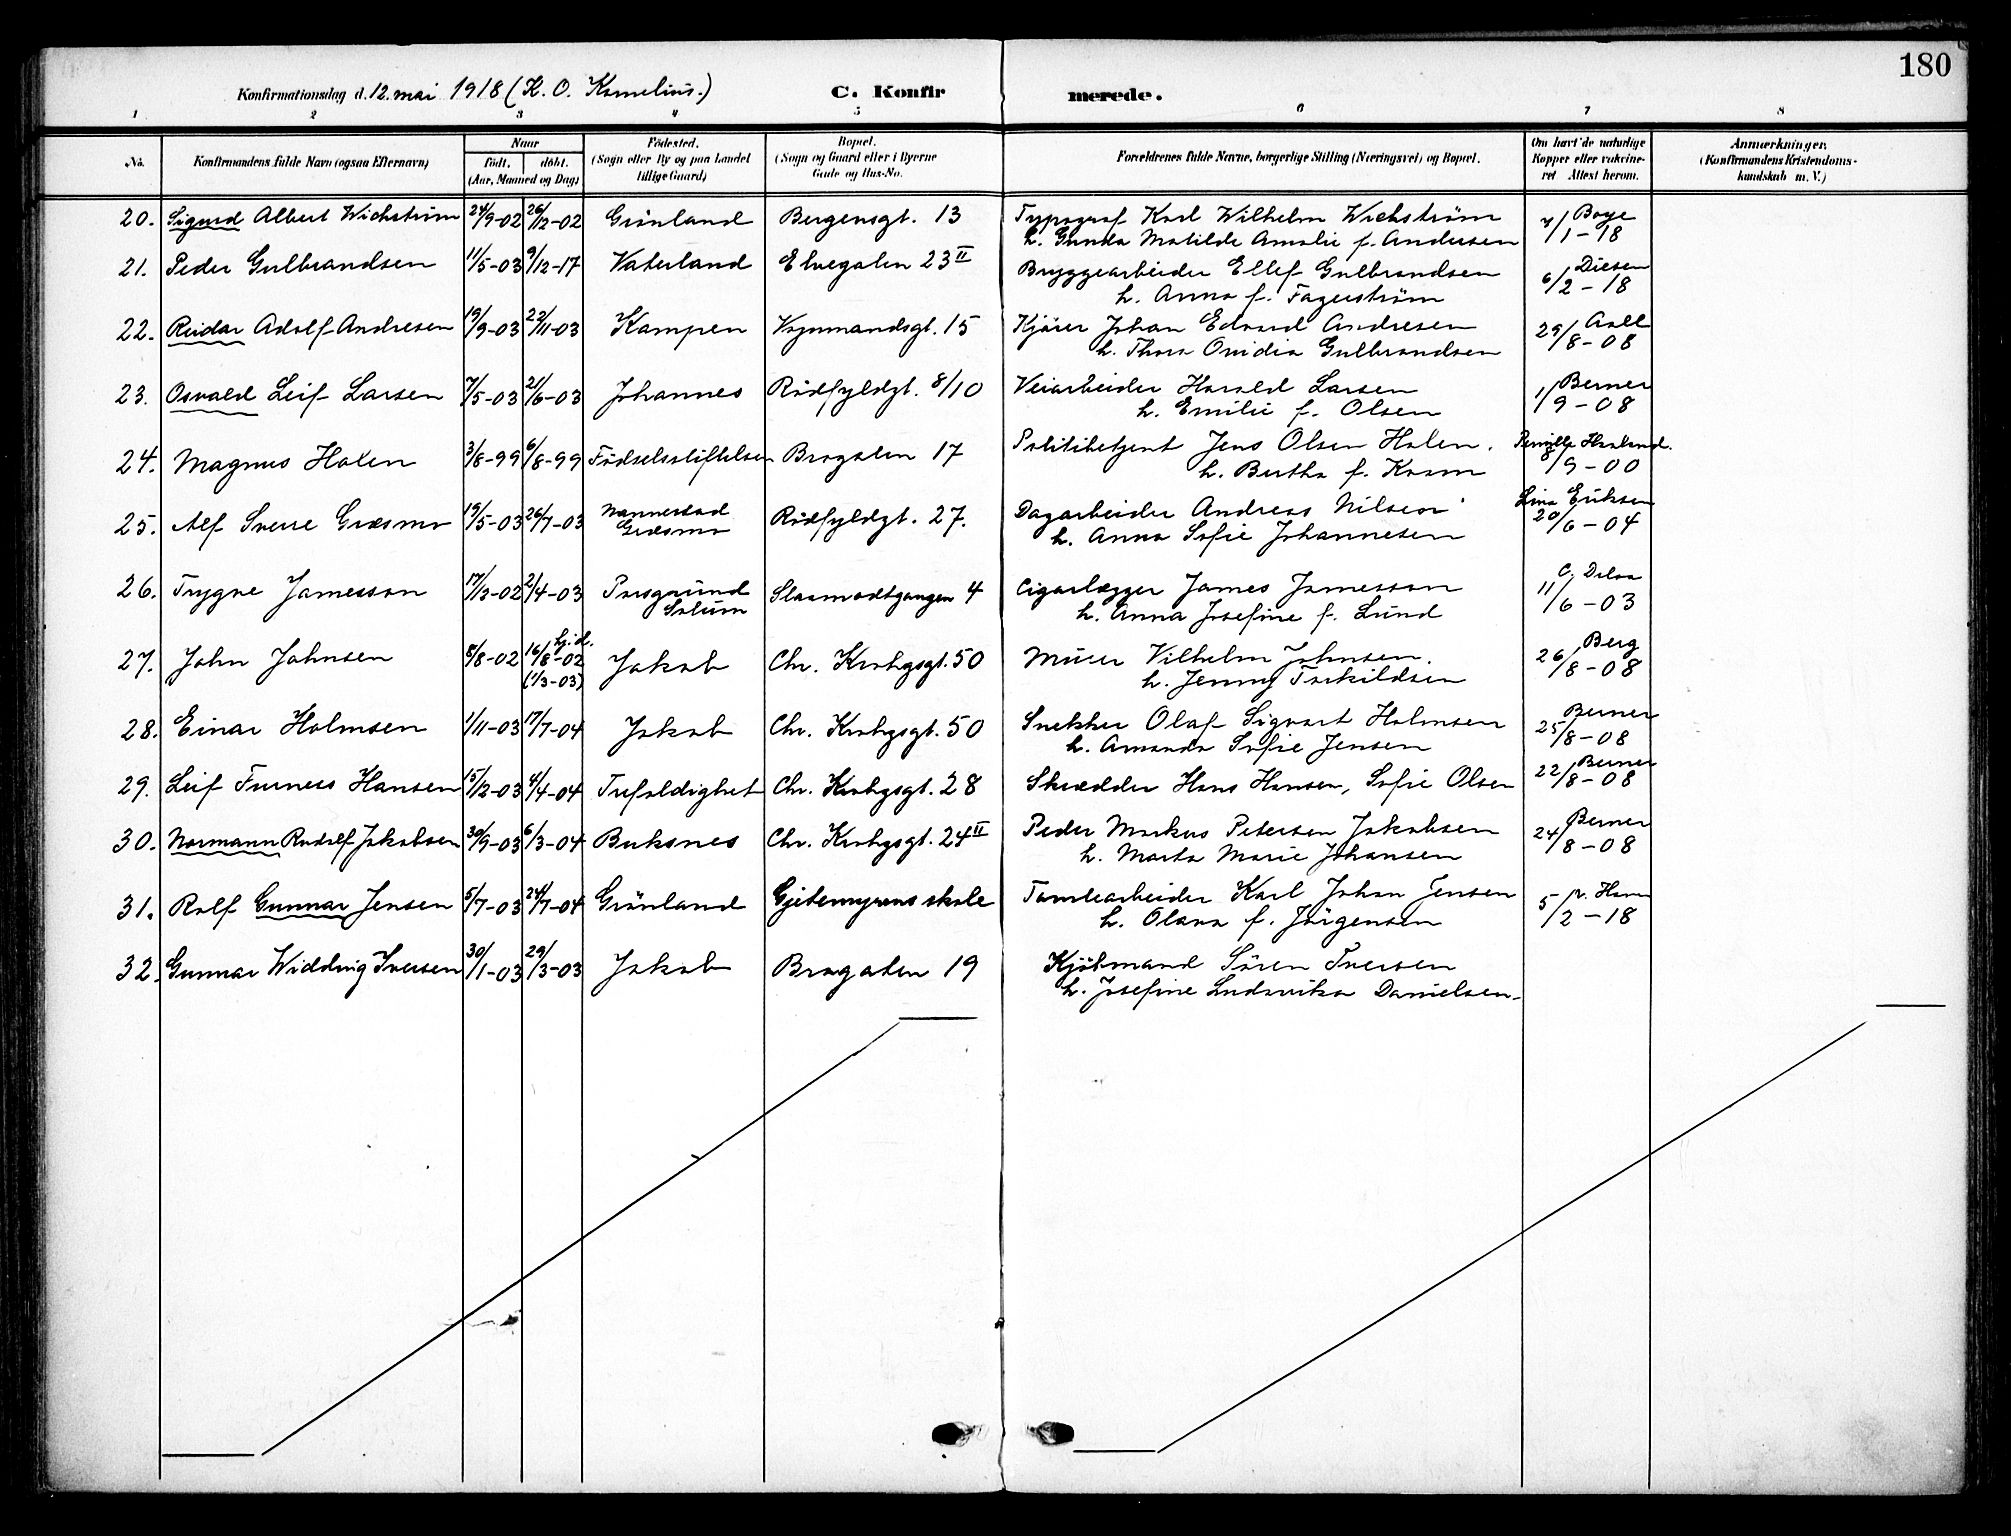 180
Konfirmationsdag d. 12. mai 1918 (K. O. Kornelius.) C. Konfirmerede.
1 2 3 4 5 6 7 8
No. Konfirmandens fulde Navn (ogsaa Efternavn) Naar født, døbt. (Aar, Maaned og Dag) Fødested. (Sogn eller By og paa Landet tillige Gaard) Bopæl. (Sogn og Gaard eller i Byerne Gade og Hus-No. Forældrenes fulde Navne, borgerlige Stilling (Næringsvei) og Bopæl. Om havt de naturlige Kopper eller vakcineret Attest herom. Anmærkninger. (Konfirmandens Kristendomskundskab m. V.)
20. Sigurd Albert Wichstrøm 24/9-02 26/12-02 Grønland Bergensgt. 13 Typograf Karl Wilhelm Wichstrøm Boye
h. Gunda Matilde Amalie f. Andersen 4/1-18
21. Peder Gulbrandsen 11/5-03 9/12-17 Vaterland Elvegaten 23 II Bryggearbeider Ellef Gulbrandsen Diesen
h. Anna f. Fagerstrøm 6/2-18
22. Reidar Adolf Andresen 19/9-03 22/11-03 Kampen Vognmandsgt. 15 Kjører Johan Edvard Andresen Aall
h. Thora Ovidia Gulbrandsen 29/8-08
23. Osvald Leif Larsen 7/5-03 21/6-03 Johannes Rødfyldgt. 8/10 Veiarbeider Harald Larsen Berner
h. Emilie f. Olsen 1/9-08
24. Magnus Holen 3/8-99 6/8-99 Fødselsstiftelsen Brogaten 17 Politibetjent Jens Olsen Holen. Pernille Haaland.
h. Bertha f. Kraam 8/9-00
25. Alf Sverre Græsmo 19/5-03 26/7-03 Nannestad Græsmo Rødfyldgt. 27. Dagarbeider Andreas Nilsen Lina Eriksen
h. Anna Sofie Johannesen 20/6-04
26. Trygve Jamesson 17/3-02 2/4-03 Porsgrund Solum Slaamodtgangen 4 Cigarlægger James Jamesson
h. Anna Josefine f. Lund 11/6-03
27. John Johnsen 8/8-02 hj.d. 16/8-02 (1/3-03) Jakob Chr. Krohgsgt. 50 Murer Vilhelm Johnsen. Berg
h. Jenny Torkildsen 26/8-08
28. Einar Holmsen 1/11-03 17/7-04 Jakob Chr. Krohgsgt. 50 Snekker Olaf Sigvart Holmsen Berner
h. Amanda Sofie Jensen 25/8-08
29. Leif Furness Hansen 15/12-03 4/4-04 Trefoldighet Chr. Krohgsgt. 28 Skrædder Hans Hansen, Sofie Olsen Berner 22/8-08
30. Normann Rudolf Jakobsen 30/9-03 6/3-04 Buksnes Chr. Krohgsgt. 24 II Peder Markus Petersen Jakobsen Berner
h. Marta Marie Johansen 24/8-08
31. Rolf Gunnar Jensen 5/7-03 24/7-04 Grønland Gjetemyrens skole Tomtearbeider Karl Johan Jensen
h. Olava f. Jørgensen 5/2-18
32. Gunnar Widding Iversen 30/1-03 29/3-03 Jakob Brogaten 19 Kjøbmand Søren Iversen
h. Josefine Ludovika Danielsen